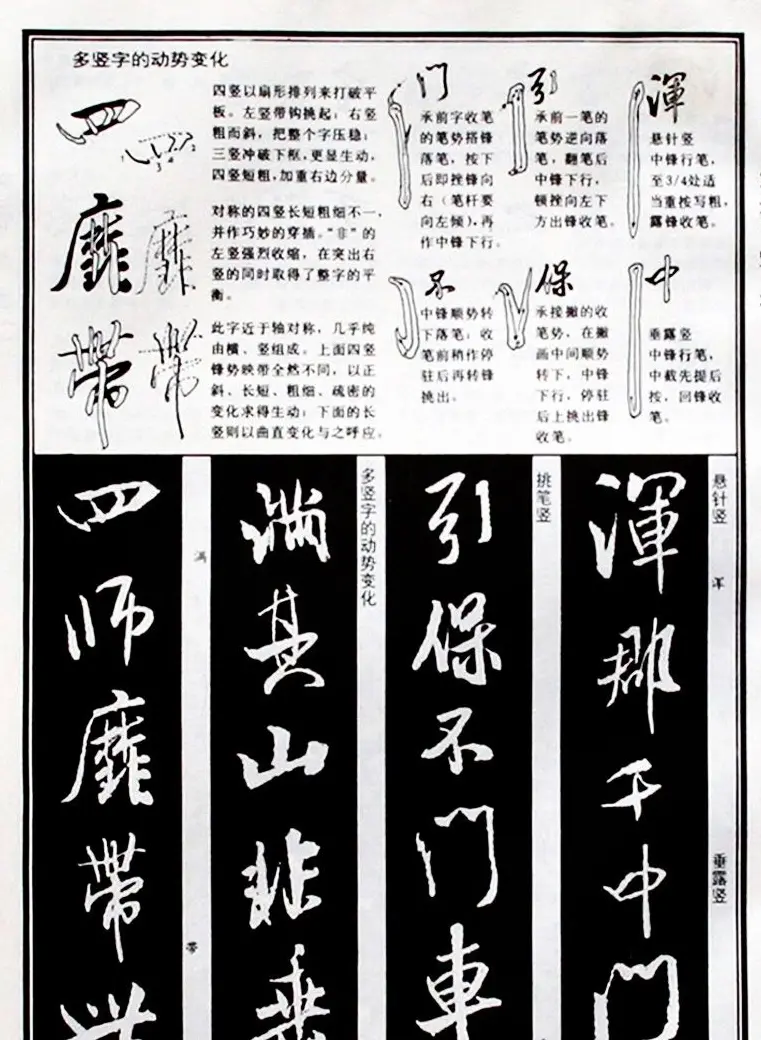 多竖字的动势变化
四竖以扇形排列来打破平
板。左竖带钩挑起；右竖
粗而斜，把整个字压稳；
三竖冲破下框，更显生动，
四竖短粗，加重右边分量。
对称的四竖长短粗细不一，
并作巧妙的穿插。“非”的
左竖强烈收缩，在突出右
竖的同时取得了整字的平
衡。
此字近于轴对称，几乎纯
由横、竖组成。上面四竖
锋势映带全然不同，以正
斜、长短、粗细、疏密的
变化求得生动；下面的长
竖则以曲直变化与之呼应。
四
靡
带
门
承前字收笔
的笔势搭锋
落笔，按下
后即挫锋向
右（笔杆要
向左倾），再
作中锋下行。
引
承前一笔的
笔势逆向落
笔，翻笔后
中锋下行，
顿挫向左下
方出锋收笔。
渾
悬针竖
中锋行笔，
至3/4处适
当重按写粗，
露锋收笔。
不
中锋顺势转
下落笔；收
笔前稍作停
驻后再转锋
挑出。
保
承接撇的收
笔势，在撇
画中间顺势
转下，中锋
下行，停驻
后上挑出锋
收笔。
中
垂露竖
中锋行笔，
中截先提后
按，回锋收
笔。
悬针竖
浑
垂露竖
渾那千中門
挑笔竖
引保不門車
多竖字的动势变化
满其山非垂
满
带
四师靡帶